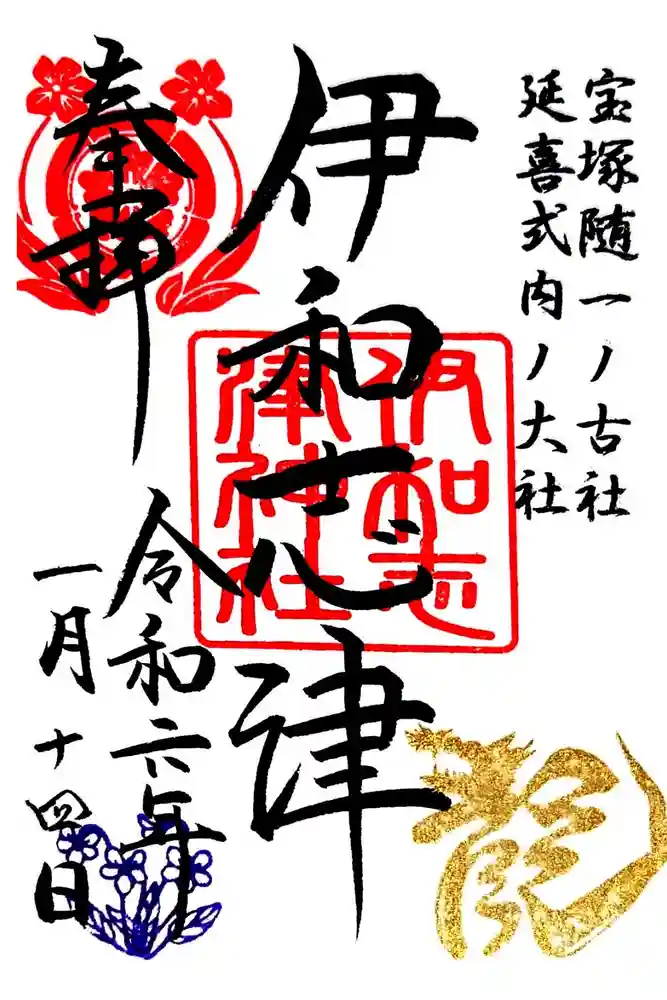 宝塚随一ノ古社
延喜式内ノ大社
奉拝
伊和志津
伊和志
津神社
令和六年
一月十四日
龍